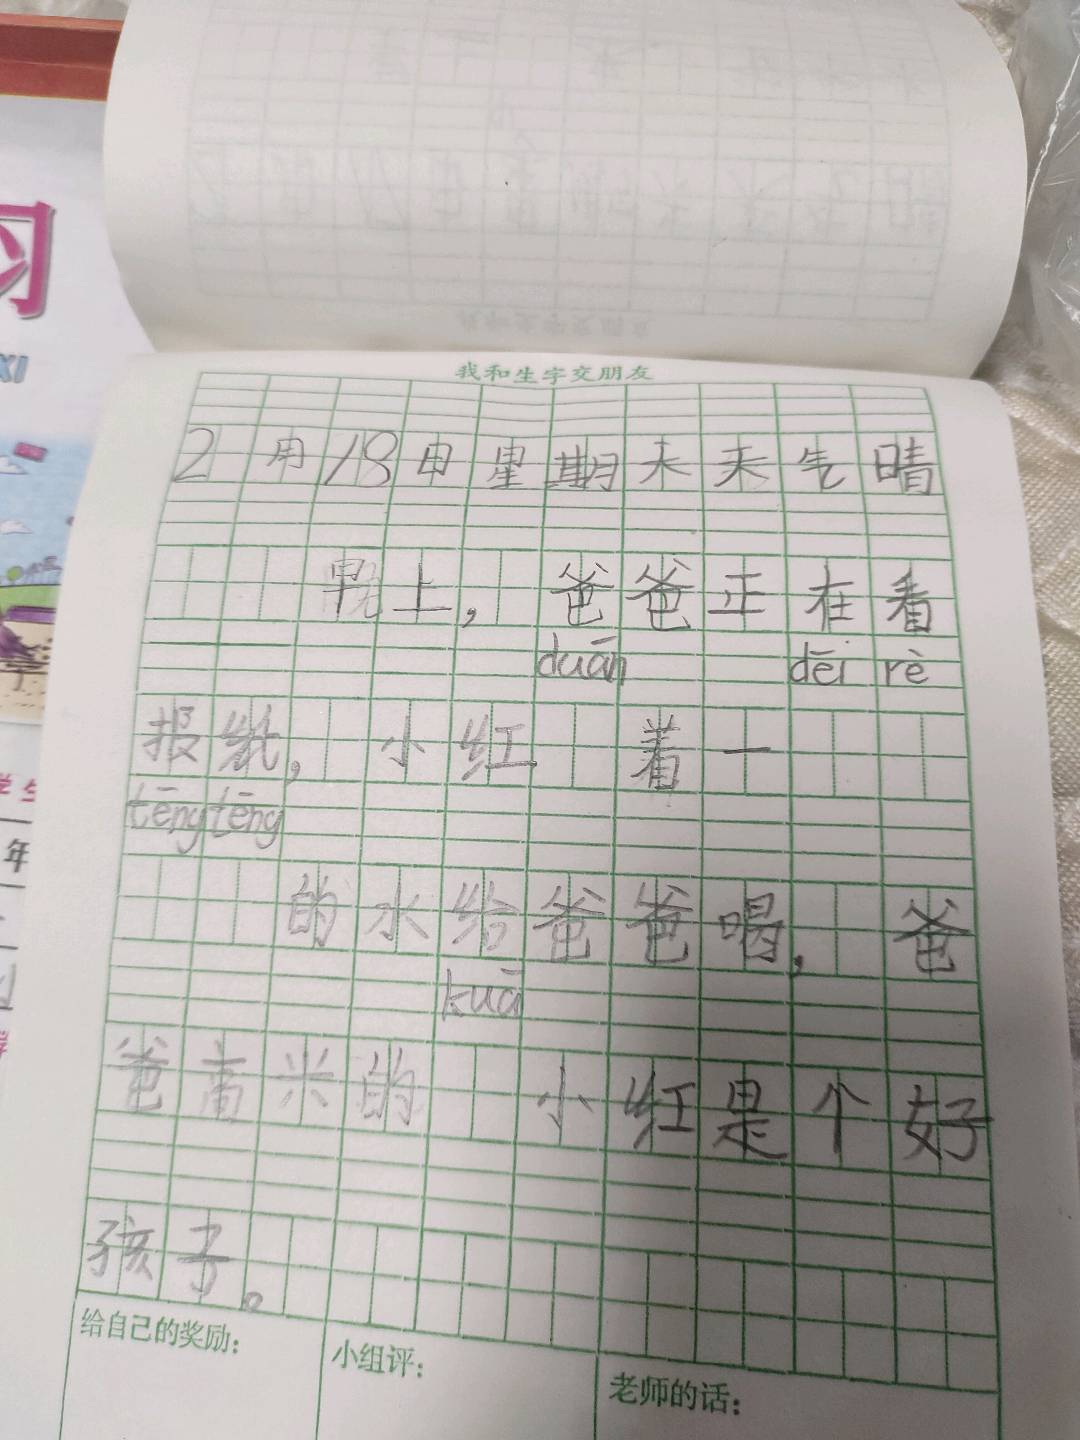 习
XI
学生
年
我和生字交朋友
2月18日星期天天气晴
早上，爸爸正在看
duān dēi rè
报纸，小红 着一
tēngtēng
的水给爸爸喝，爸
kuā
爸高兴的 小红是个好
孩子。
给自己的奖励：
小组评：
老师的话：